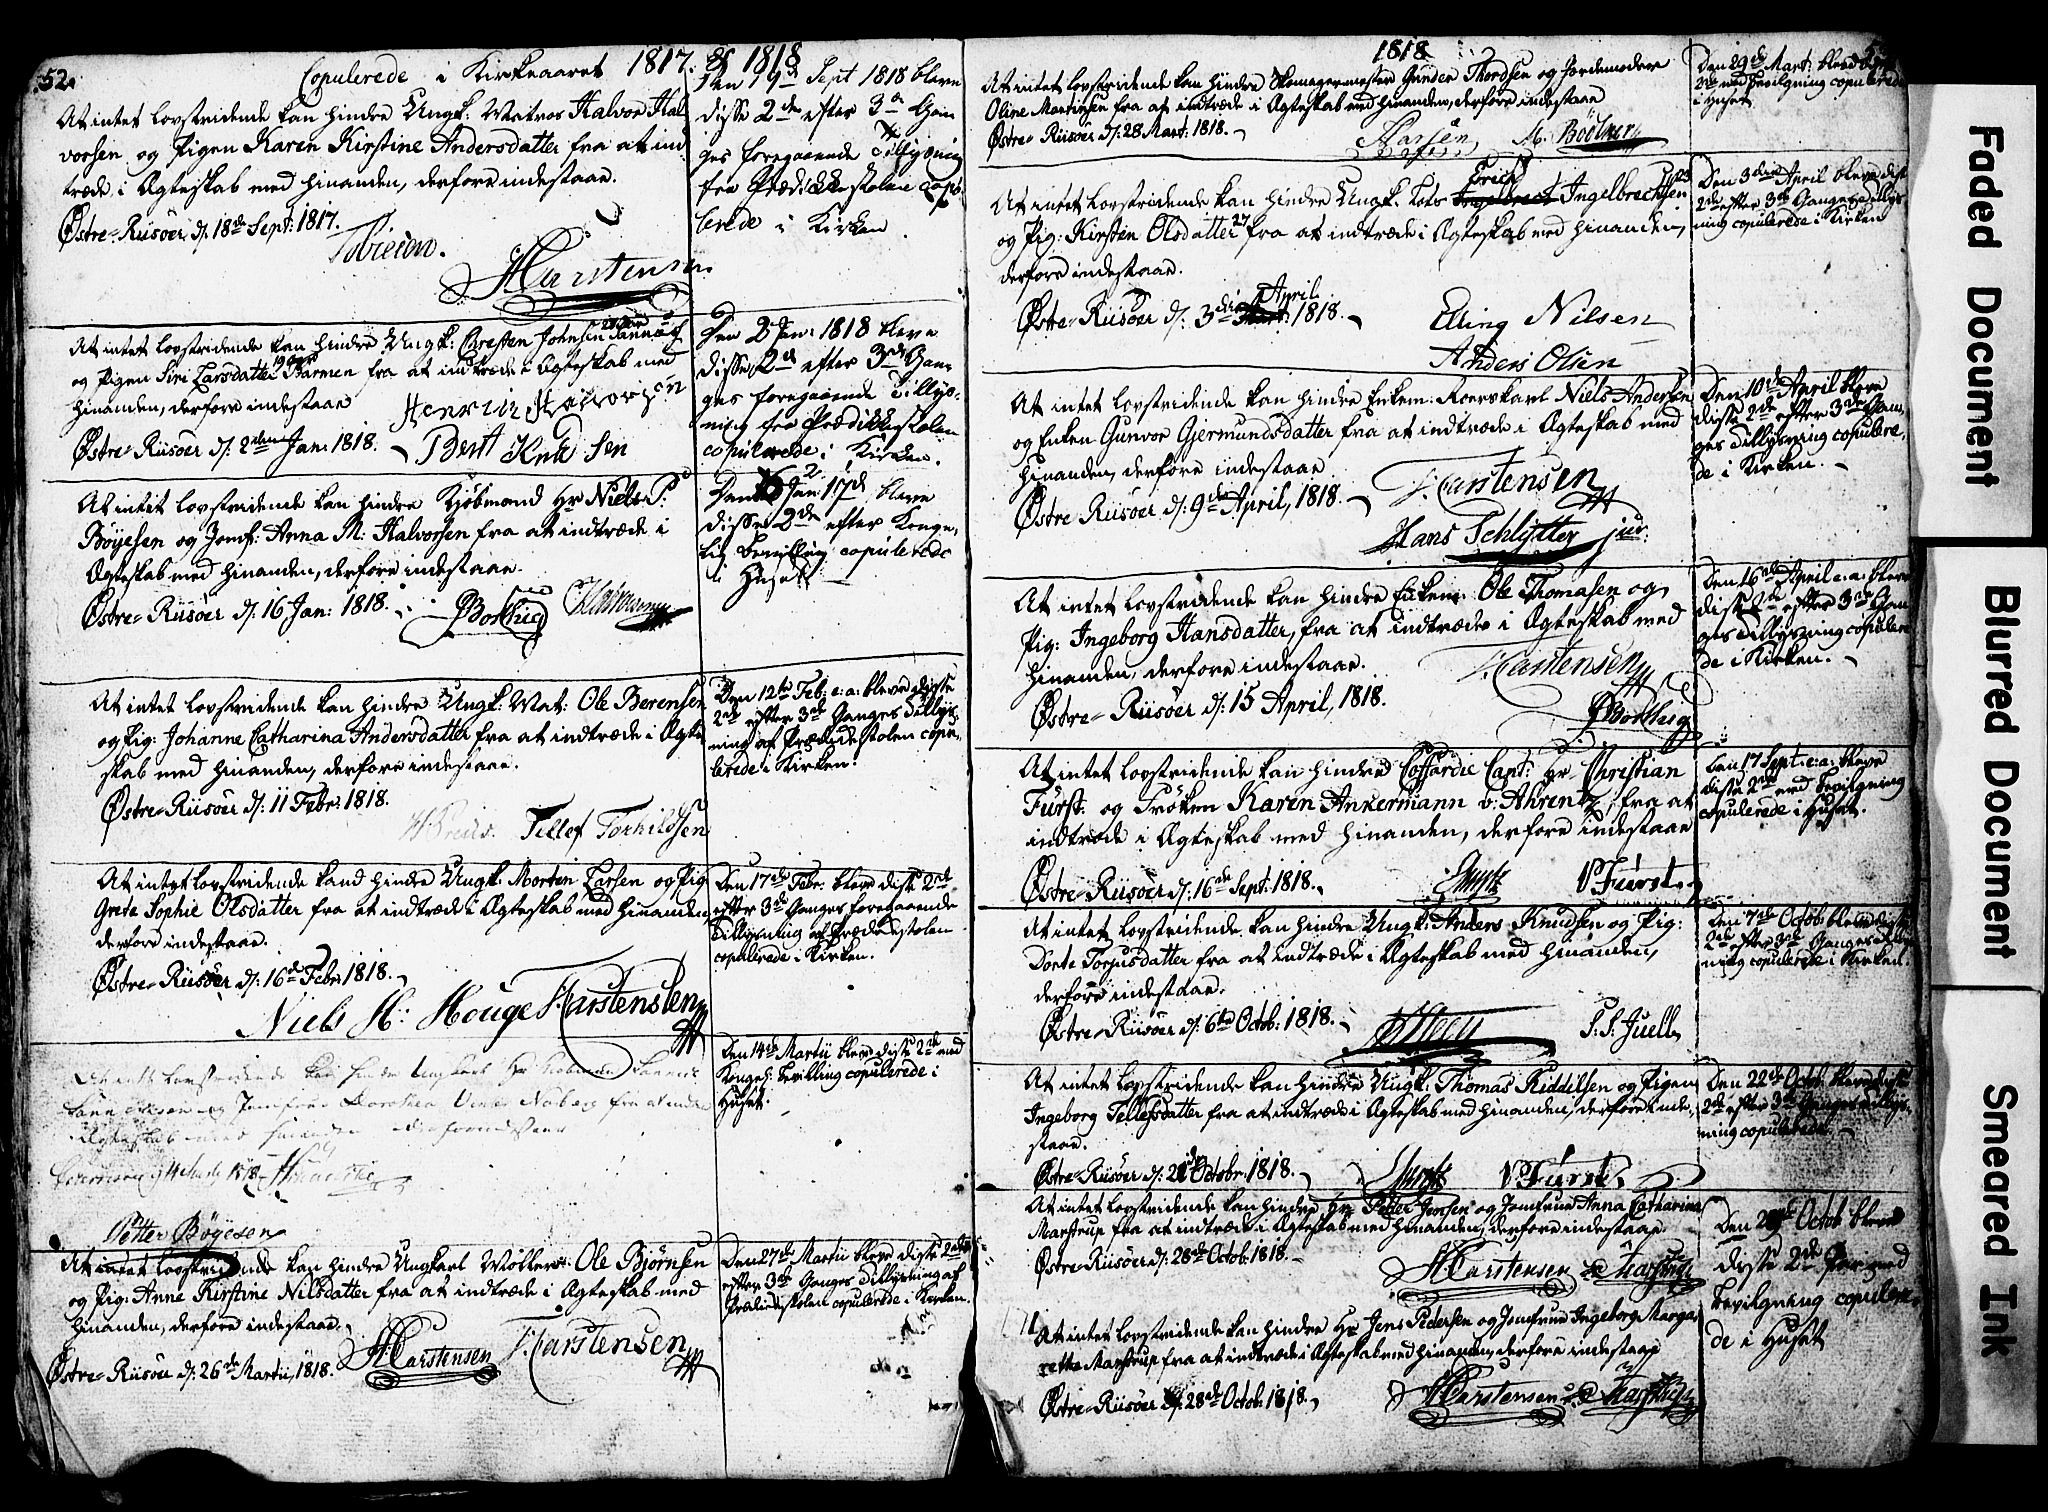 52.
Copulerede i Kirkeaaret 1817. & 1818
At intet lovstridende kan hindre Ungk: Matros Halvor Hal
vorsen og Pigen Karen Kirstine Andersdatter fra at ind
træde i Ægteskab med hinanden, derfore indestaae.
Østre-Riisöer d: 18de Sept: 1817.
HCarstensen
Den 19de Sept 1818 bleve
disse 2de efter 3de Gan
ges foregaaende Tillysning
fra Prædikestolen copu
lerede i Kirken.
At intet lovstridende kan hindre Ungk: Christen Johnsen
og Pigen Siri Larsdatter Barmen fra at indtræde i Ægteskab med
hinanden, derfore indestaae
Østre-Riisöer d: 2den Jan: 1818.
Henrik Halvorsen
Bent Knudsen
Den 2 Jan: 1818 bleve
disse 2de efter 3de Gan
ges foregaaende Tillys-
ning fra Prædikkestolen
copulerede i Kirken.
At intet lovstridende kan hindre Kjöbmand Hr Niels P:
Böyesen og Jomf: Anna M: Halvorsen fra at indtræde i
Ægteskab med hinanden, derfore indestaae.
Østre-Riisöer d: 16 Jan: 1818.
Den Jan: 17d bleve
disse 2de efter Konge-
lig bevilling copulerede
i Huset
At intet lovstridende kan hindre Ungk: Mat: Ole Berensen
og Pig: Johanne Catharina Andersdatter fra at indtræde i Ægte
skab med hinanden, derfore indestaae.
Østre-Riisöer d: 11 Febr: 1818.
Tellef Torkildsen
Den 12te Feb: e: a: bleve diste
2de efter 3de Ganges Tillys-
ning af Prædikestolen copu-
lerede i Kirken.
At intet lovstridende kand hindre Ungk: Morten Larsen og Pig
Grete Sophie Olsdatter fra at indtræde i Ægteskab med hinanden
derfore indestaae.
Østre-Riisöer d: 16de Febr: 1818.
Niels H: Houge HCarstensen
Den 17de Febr: bleve diste 2de
efter 3de Ganges foregaaende
Tillysning af Prædikestolen
copulerede i Kirken.
At intet lovstridende kan hindre Ungkarl
og Jomfrue Dorothea fra at indtræde
Ægteskab med hinanden derfor indestaar
Petter Böyesen
Den 14de Martii bleve diste 2de med
Kongel: bevilling copulerede i
Huset.
At intet lovstridende kan hindre Ungkarl Ole Björnsen
og Pig: Anne Kirstine Nilsdatter fra at indtræde i Ægteskab med
hinanden, derfore indestaae.
Østre-Riisöer d: 26de Martii, 1818.
HCarstensen HCarstensen
Den 27de Martii bleve diste 2de
efter 3de Ganges Tillysning af
Prædikestolen copulerede i Kirken.
1818
At intet lovstridende kan hindre Skomagermester Gunder Thordsen og Jordemoder
Oline Mortinsen fra at indtræde i Ægteskab med hinanden, derfore indestaae
Østre-Riisöer d: 28 Mart: 1818.
Den 29de Mart: bleve
2de med bevilgning copulerede
i Huset
Erich
At intet lovstridende kan hindre Ungk. Lods Ingelbrecht Ingelbrechtsen 23
og Pig: Kirsten Olsdatter 27 fra at indtræde i Ægteskab med hinanden,
derfore indestaae.
April
Østre-Riisöer d: 3die Mart: 1818.
Elling Nilsen
Anders Olsen
Den 3die April bleve diste
2de efter 3de Ganges Tillys
ning copulerede i Kirken
At intet lovstridende kan hindre Enkem: Roerskarl Niels Andersen
og Enken Gunvor Gjermundsdatter fra at indtræde i Ægteskab med
hinanden, derfore indestaae
Østre-Riisöer d: 9de April, 1818.
HCarstensen
Hans Schlytter jur:
Den 10de April bleve
diste 2de efter 3de Gan-
ges Tillysning copulere-
de i Kirken.
At intet lovstridende kan hindre Enkem: Ole Thomasen og
Pig: Ingeborg Hansdatter, fra at indtræde i Ægteskab med
hinanden, derfore indestaae.
Østre-Riisöer d: 15 April, 1818.
HCarstensen
Den 16de April e: a: bleve
diste 2de efter 3de Gan
ges Tillysning copulere
de i Kirken.
At intet lovstridende kan hindre Coffardie Capt: Hr Christian
Fürst. og Fröken Karen Ankermann v: Ahrentz, fra at
indtræde i Ægteskab med hinanden, derfore indestaae
Østre-Riisöer d: 16de Sept: 1818.
Fürst
Den 17 Sept: e: a: bleve
diste 2de med bevilgning
copulerede i Huset.
At intet lovstridende kan hindre Ungk: Anders Knudsen og Pig:
Dorte Torjusdatter fra at indtræde i Ægteskab med hinanden,
derfore indestaae.
Østre-Riisöer d: 6te Octob: 1818.
P. S. Juell
Den 7de Octob: bleve diste
2de efter 3de Ganges Tillys
ning copulerede i Kirken.
At intet lovstridende kan hindre Ungk: Thomas Kiddilsen og Pigen
Ingeborg Tellefsdatter fra at indtræde i Ægteskab med hinanden, derfore inde-
staae.
Østre-Riisöer d: 21de Octobr: 1818.
Fürst
Den 22de Octob: bleve diste
2de efter 3de Ganges Tillys-
ning copulerede.
At intet lovstridende kan hindre Hr Peder Jensen og Jomfrue Anna Catharina
Marstrup fra at indtræde i Ægteskab med hinanden, derfore indestaae
Østre-Riisöer d: 28de Octob: 1818.
HCarstensen
Den Octob: bleve
diste 2de Par med
bevilgning copulere-
de i Huset
At intet lovstridende kan hindre Hr Jens Pedersen og Jomfrue Ingeborg Marga
retta Marstrup fra at indtræde i Ægteskab med hinanden, derfore indestaae
Østre-Riisöer d: 28de Octob: 1818.
HCarstensen
Faded Document
Blurred Document
Smeared Ink